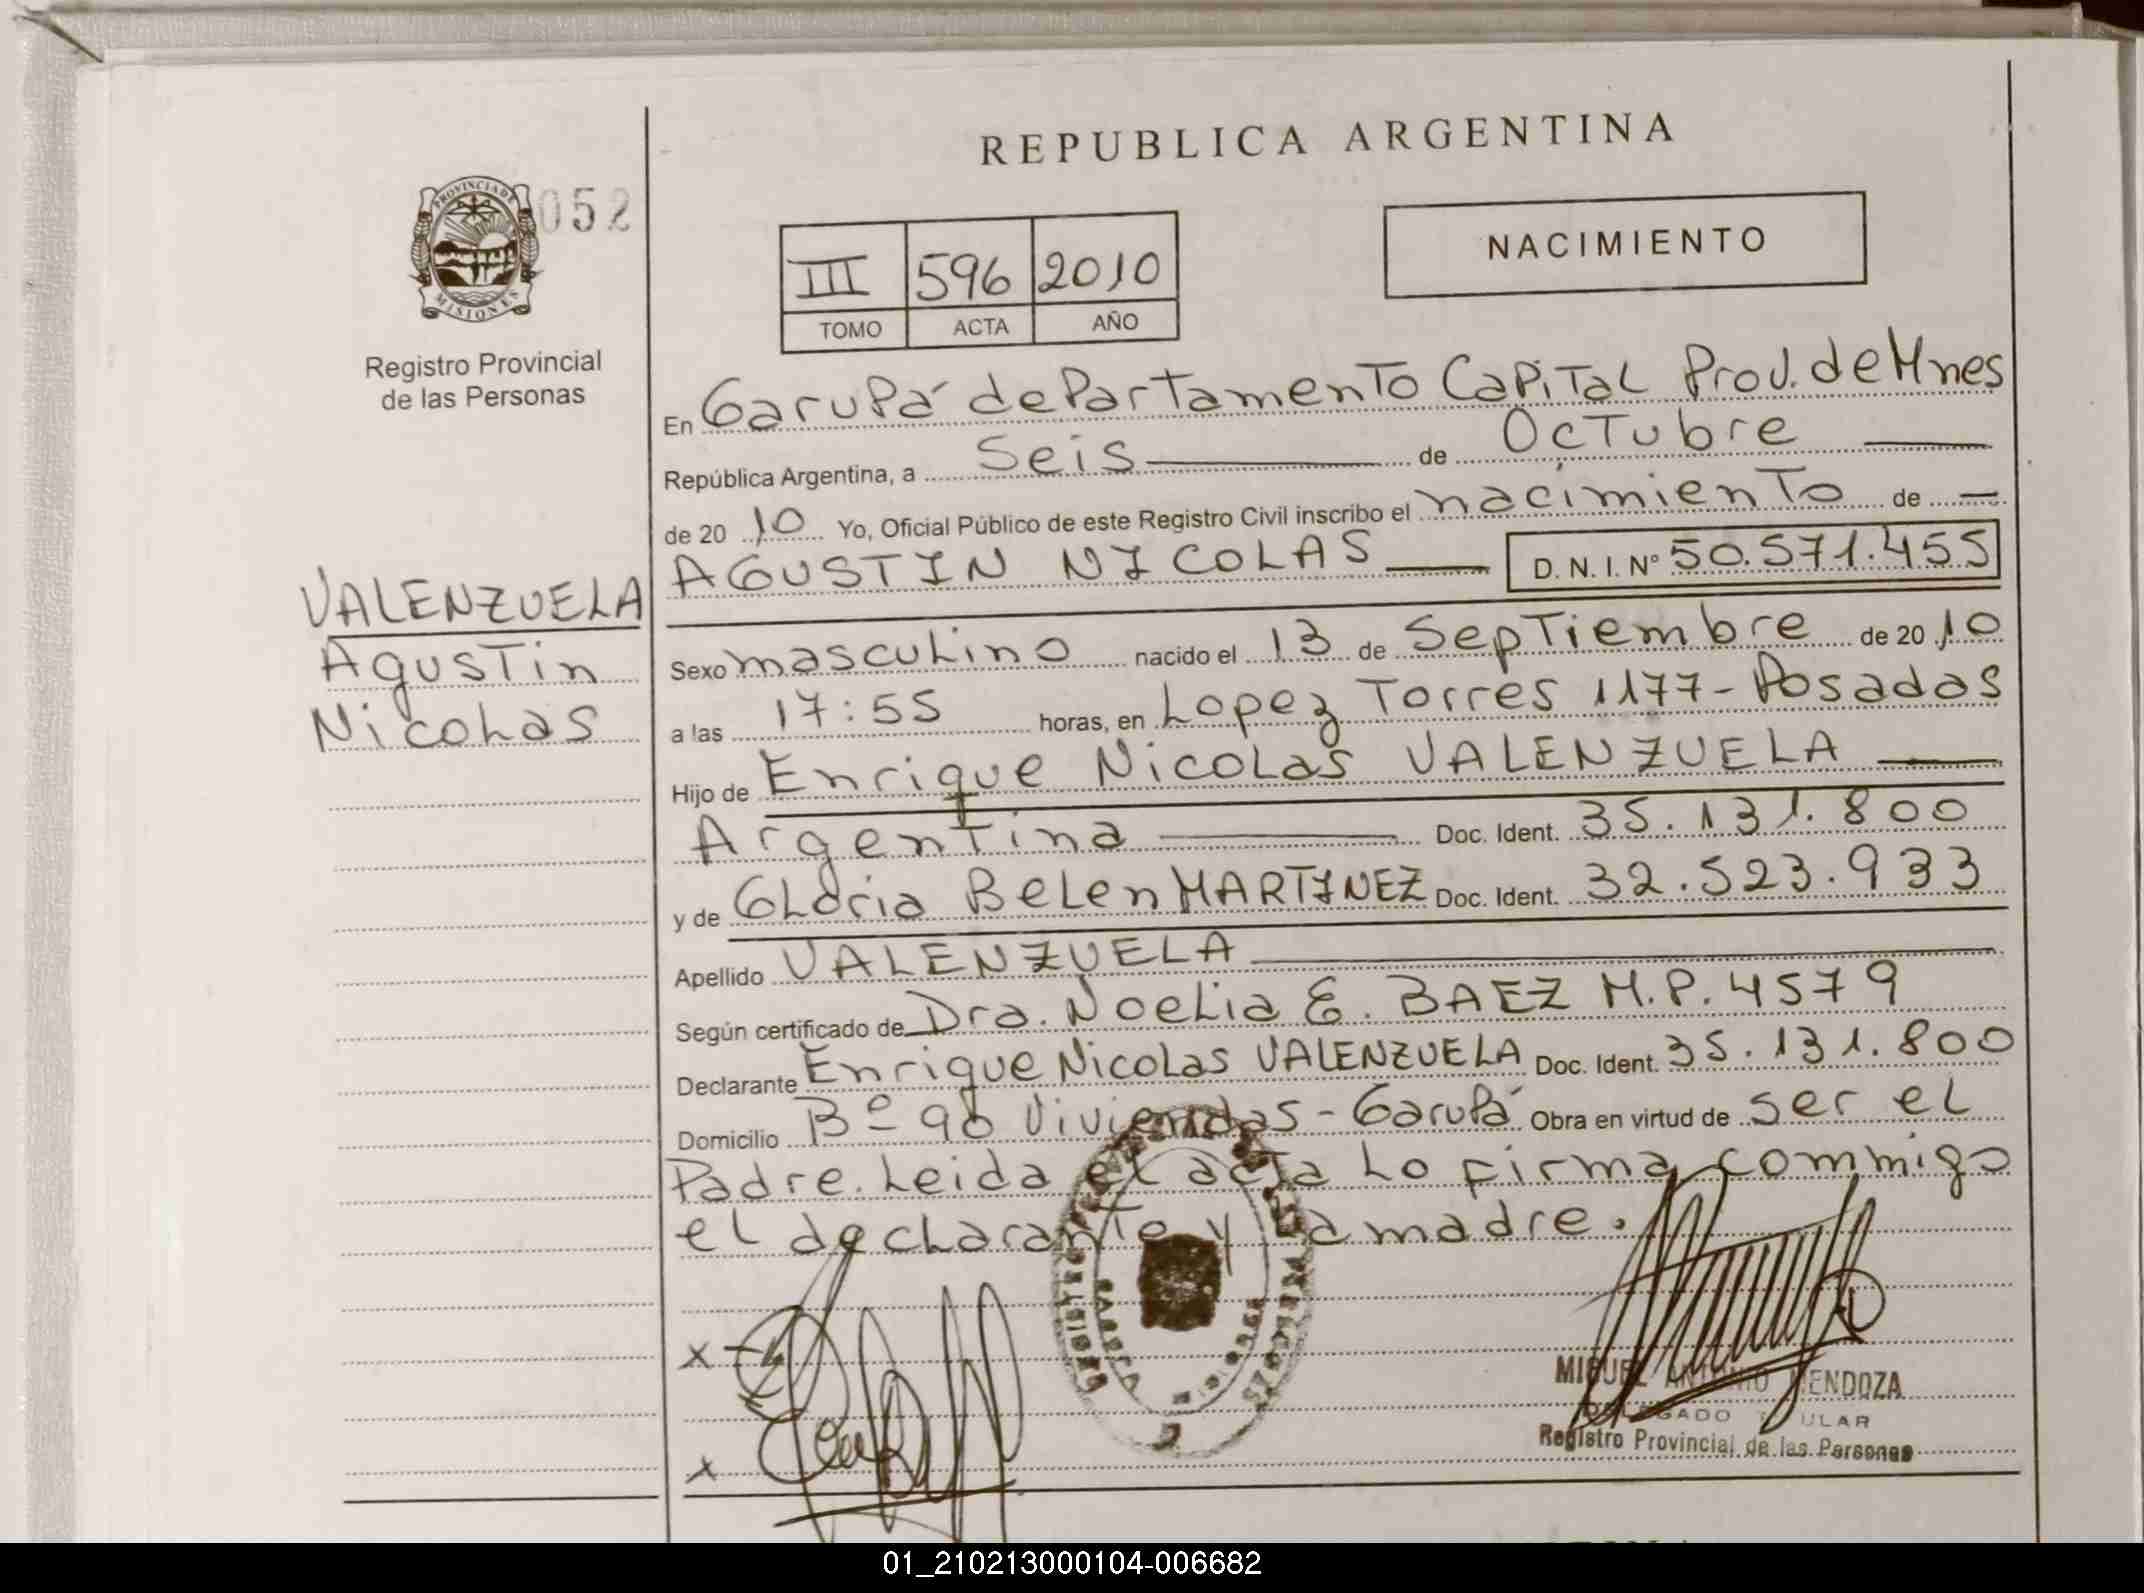 REPUBLICA ARGENTINA
PROVINCIA DE
MISIONES
052
Registro Provincial
de las Personas
III 596 2010
TOMO ACTA AÑO
NACIMIENTO
En Garupá departamento Capital Prov. de Mnes
República Argentina, a Seis de Octubre
de 20 10 Yo, Oficial Público de este Registro Civil inscribo el nacimiento de
AGUSTIN NICOLAS D.N.I. Nº 50.571.455
VALENZUELA
Agustin
Nicolas
Sexo masculino nacido el 13 de Septiembre de 20 10
a las 17:55 horas, en Lopez Torres 1177 - Posadas
Hijo de Enrique Nicolas VALENZUELA
Argentina Doc. Ident. 35.131.800
y de Gloria Belen MARTINEZ Doc. Ident. 32.523.933
Apellido VALENZUELA
Según certificado de Dra. Noelia E. BAEZ M.P. 4579
Declarante Enrique Nicolas VALENZUELA Doc. Ident. 35.131.800
Domicilio Bº 90 Viviendas - Garupá Obra en virtud de ser el
Padre. Leida el acta lo firma commigo
el declarante y la madre.
x
x
MIGUEL ANTONIO MENDOZA
DELEGADO TITULAR
Registro Provincial de las Personas
01_210213000104-006682